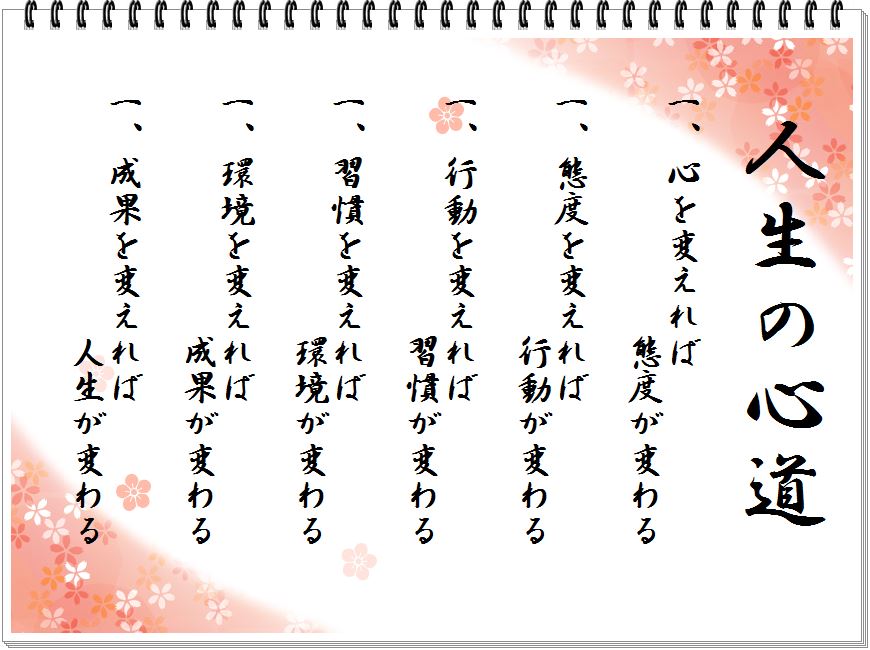 人生の心道
一、心を変えれば
態度が変わる
一、態度を変えれば
行動が変わる
一、行動を変えれば
習慣が変わる
一、習慣を変えれば
環境が変わる
一、環境を変えれば
成果が変わる
一、成果を変えれば
人生が変わる